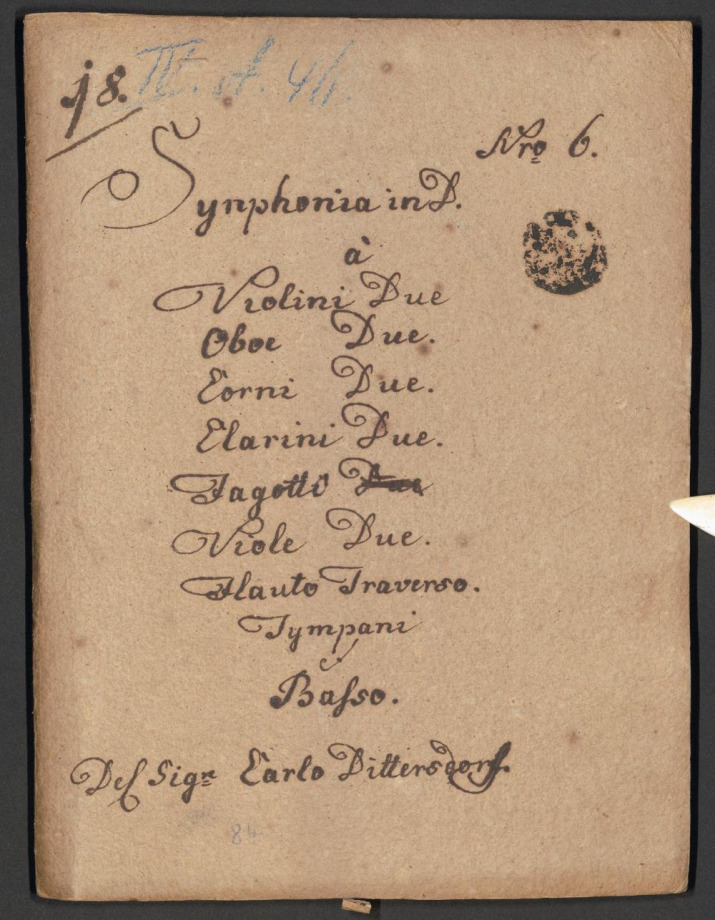 18.
Nro 6.
Synphonia in D.
à
Violini Due
Oboe Due.
Corni Due.
Clarini Due.
Fagotti Due
Viole Due.
Flauto Traverso.
Tympani
Basso.
Del Sigr Carlo Dittersdorf.
84